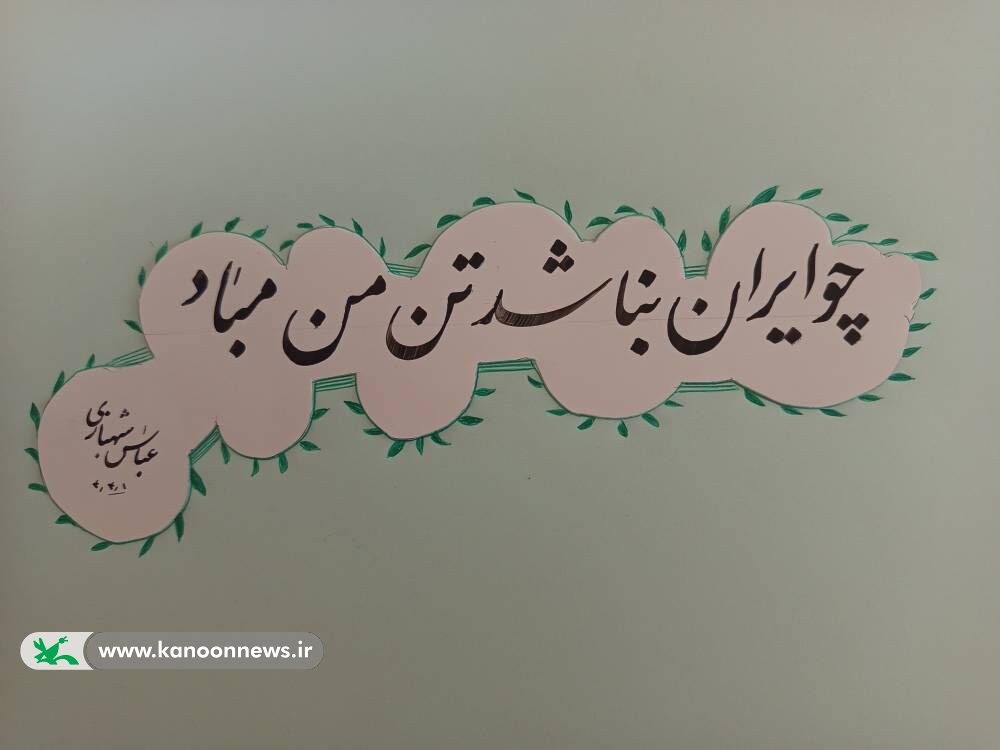 چو ایران نباشد تن من مباد
عباس شهبازی
www.kanoonnews.ir